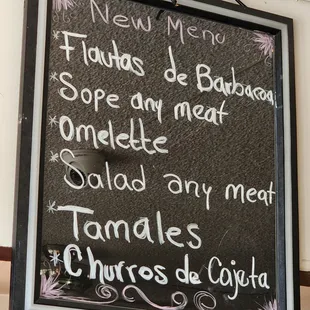 New Menu
*Flautas de Barbacoa
*Sope any meat
*Omelette
*Salad any meat
*Tamales
*Churros de Cajeta